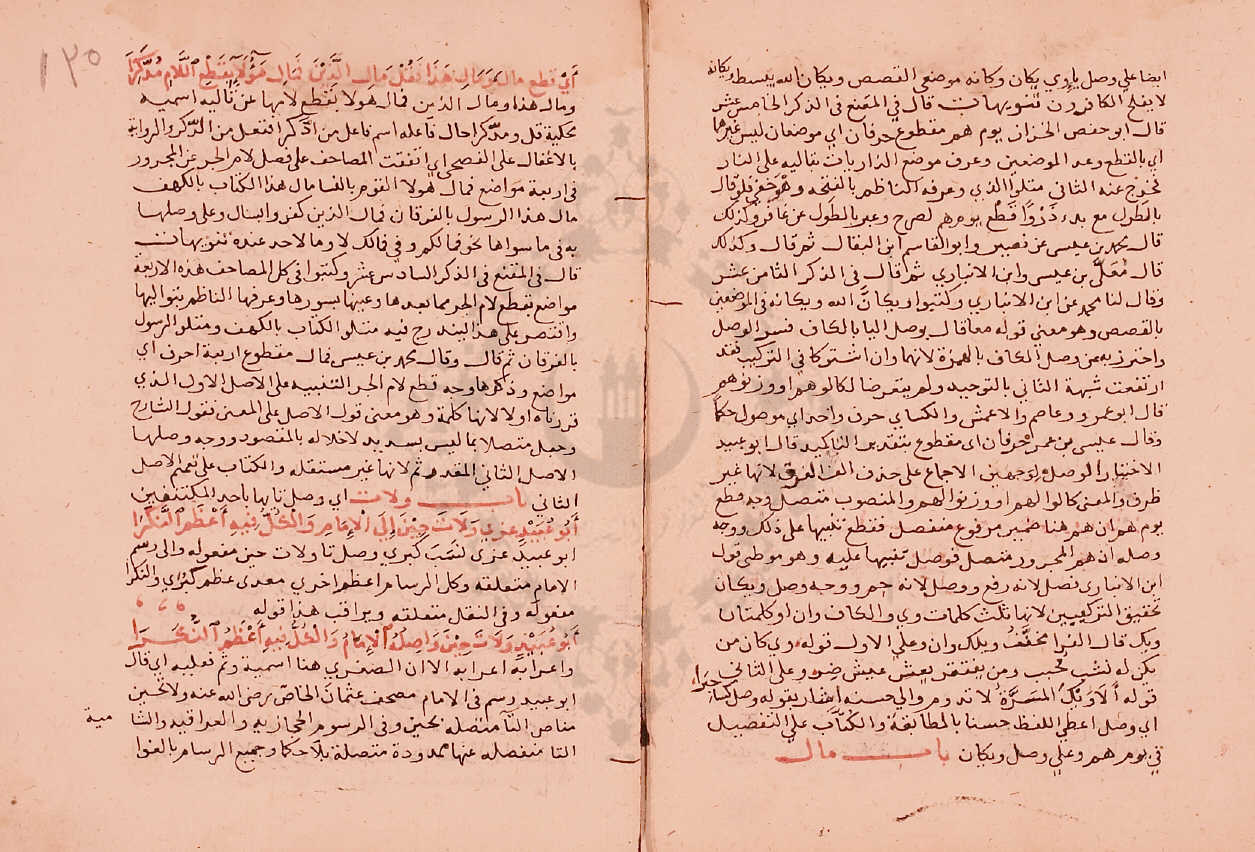 ايضا على وصل يا وي بكان وكانه موضعي القصص ويكان الله يبسط ويكانه
لا يفلح الكافرون تنويهات قال في المقنع في الذكر الخامس عشر
قال ابو حفص الخزاز يوم هم مقطوع حرفان اي موضعان ليس غيرهما
اي بالقطع وعد الموضعين وعرف موضع الذاريات بتاليه على النار
فخرج عنه الثاني متلوا الذي وعرفه الناظم بالفتحة
بالطول مع بدء ذروا قطع يوم هم لصرح وعبر بالطول عن غافر وكذلك
قال محمد بن عيسى عن نصير وابو القاسم ابن البقال ثم قال وكذلك
قال معلى بن عيسى وابن الانباري ثم قال في الذكر الثامن عشر
وقال لنا محمد عن ابن الانباري وكتبوا ويكان الله ويكانه في الموضعين
بالقصص وهو معنى قوله معا قال بوصل اليا بالكاف فسر الوصل
واحترز به من وصل الكاف بالهمزة لانها وان اشتركا في التركيب فقد
ارتفعت شبهة الثاني بالتوحيد ولم يتعرضا لكالوهم او وزنوهم
قال ابو عمرو وعاصم والاعمش والكسائي حرف واحد اي موصول حكما
وقال عيسى بن عمر حرفان اي مقطوع بتقدير التاكيد قال ابو عبيد
الاختيار الوصل لوجهين الاجماع على حذف الف الفرق لانها غير
ظرف والمعنى كالوا لهم او وزنوا لهم والمنصوب متصل وجه قطع
يوم هم ان هم هنا ضمير مرفوع منفصل فقطع تنبيها على ذلك ووجه
وصله ان هم المجرور متصل فوصل تنبيها عليه وهو موطئ قول
ابن الانباري فصل لانه رفع ووصل لانه جر ووجه وصل ويكان
تحقيق التركيبين لانها ثلث كلمات وي والكاف وان او كلمتان
ويك قال الفرا مخفف ويلك وان وعلى الاول قوله وي كان من
يكن له نشب يحبب ومن يفتقر يعش عيش ضر وعلى الثاني
قوله الا ويك المسرة لا تدوم والى حسنه اشار بقوله وصل كسا حبرا
اي وصل اعطى اللفظ حسنا بالمطابقة والكتاب على التفصيل
في يوم هم وعلى وصل ويكان باب مال
١٢٥
ومال هذا ومال الذين فمال هولا بقطع لامها عن تاليه اسمية
محكية قل ومدكرا حال فاعله اسم فاعل من ادكر افتعل من الذكر والرواية
بالاغفال على الفصحى اي اتفقت المصاحف على فصل لام الجر عن المجرور
في اربعة مواضع فمال هولا القوم بالنسا مال هذا الكتاب بالكهف
مال هذا الرسول بالفرقان فمال الذين كفروا بسال وعلى وصلها
به في ما سواها نحو فما لكم وفي مالك لا وما لاحد عنده تنويهات
قال في المقنع في الذكر السادس عشر وكتبوا في كل المصاحف هذه الاربعة
مواضع بقطع لام الجر مما بعدها وعينها بسورها وعرفها الناظم بتواليها
واقتصر على هذا ليندرج فيه متلو الكتاب بالكهف ومتلو الرسول
بالفرقان ثم قال وقال محمد بن عيسى فمال مقطوع اربعة احرف اي
مواضع وذكرها وجه قطع لام الجر التنبيه على الاصل الاول الذي
قررناه اولا لانها كلمة وهو معنى قول الاصل على المعنى فقول الشارح
وجعل متصلا بما ليس بسديد لاخلاله بالمقصود ووجه وصلها
الاصل الثاني المقدر ثم لانها غير مستقلة والكتاب على تعميم الاصل
الثاني باب ولات اي وصل تايها باحد المكتنفين
ابو عبيد عزي ولات حين الى الامام والكل فيه اعظم النكرا
ابو عبيد عزى نسب كبري وصل تا ولات حين مفعوله والى رسم
الامام متعلقه وكل الرسام اعظم اخرى معدى عظم كبراي والنكرا
مفعوله وفي النقل متعلقه ويراقب هذا قوله
ابو عبيد ولات حين واصله الامام والكل فيه اعظم النكرا
واعرابه اعرابه الا ان الصغرى هنا اسمية وثم فعلية اي قال
ابو عبيد رسم في الامام مصحف عثمان الخاص رضي الله عنه ولا تحين
مناص التا متصلة بحين وفي الرسوم الحجازية والعراقية والشا
التا منفصلة عنها ممدودة متصلة بلا حكما وجميع الرسام بالغوا
مية